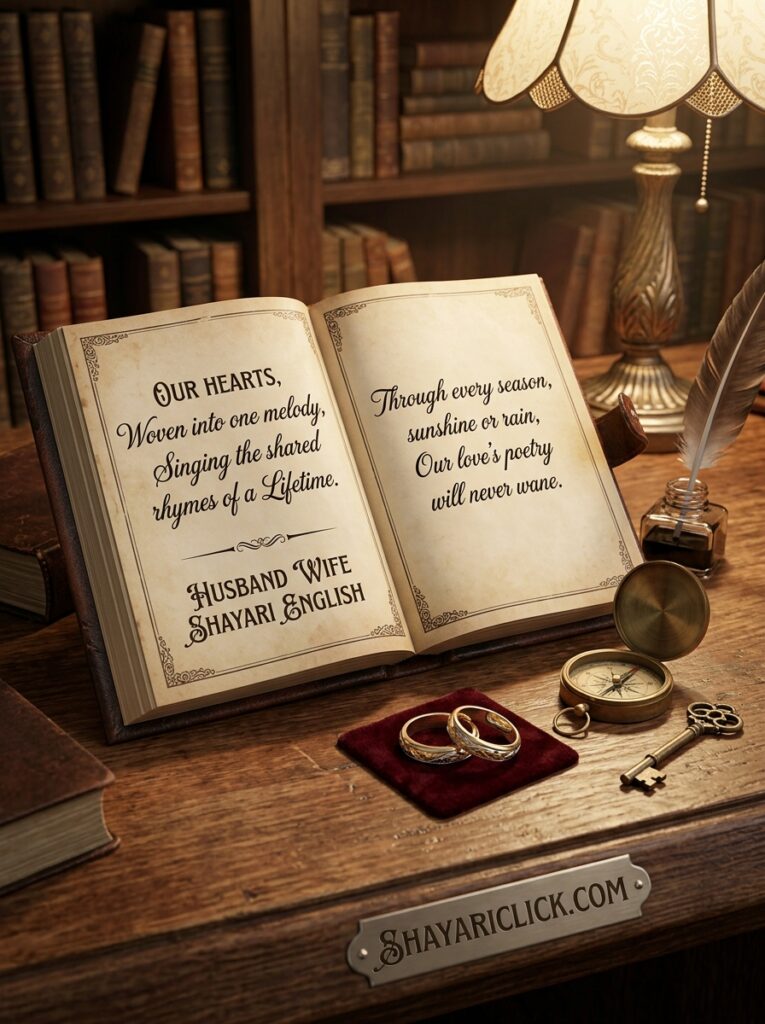 Our hearts,
Woven into one melody,
Singing the shared
rhymes of a Lifetime.
Husband Wife
Shayari English
Through every season,
sunshine or rain,
Our love's poetry
will never wane.
Shayariclick.com